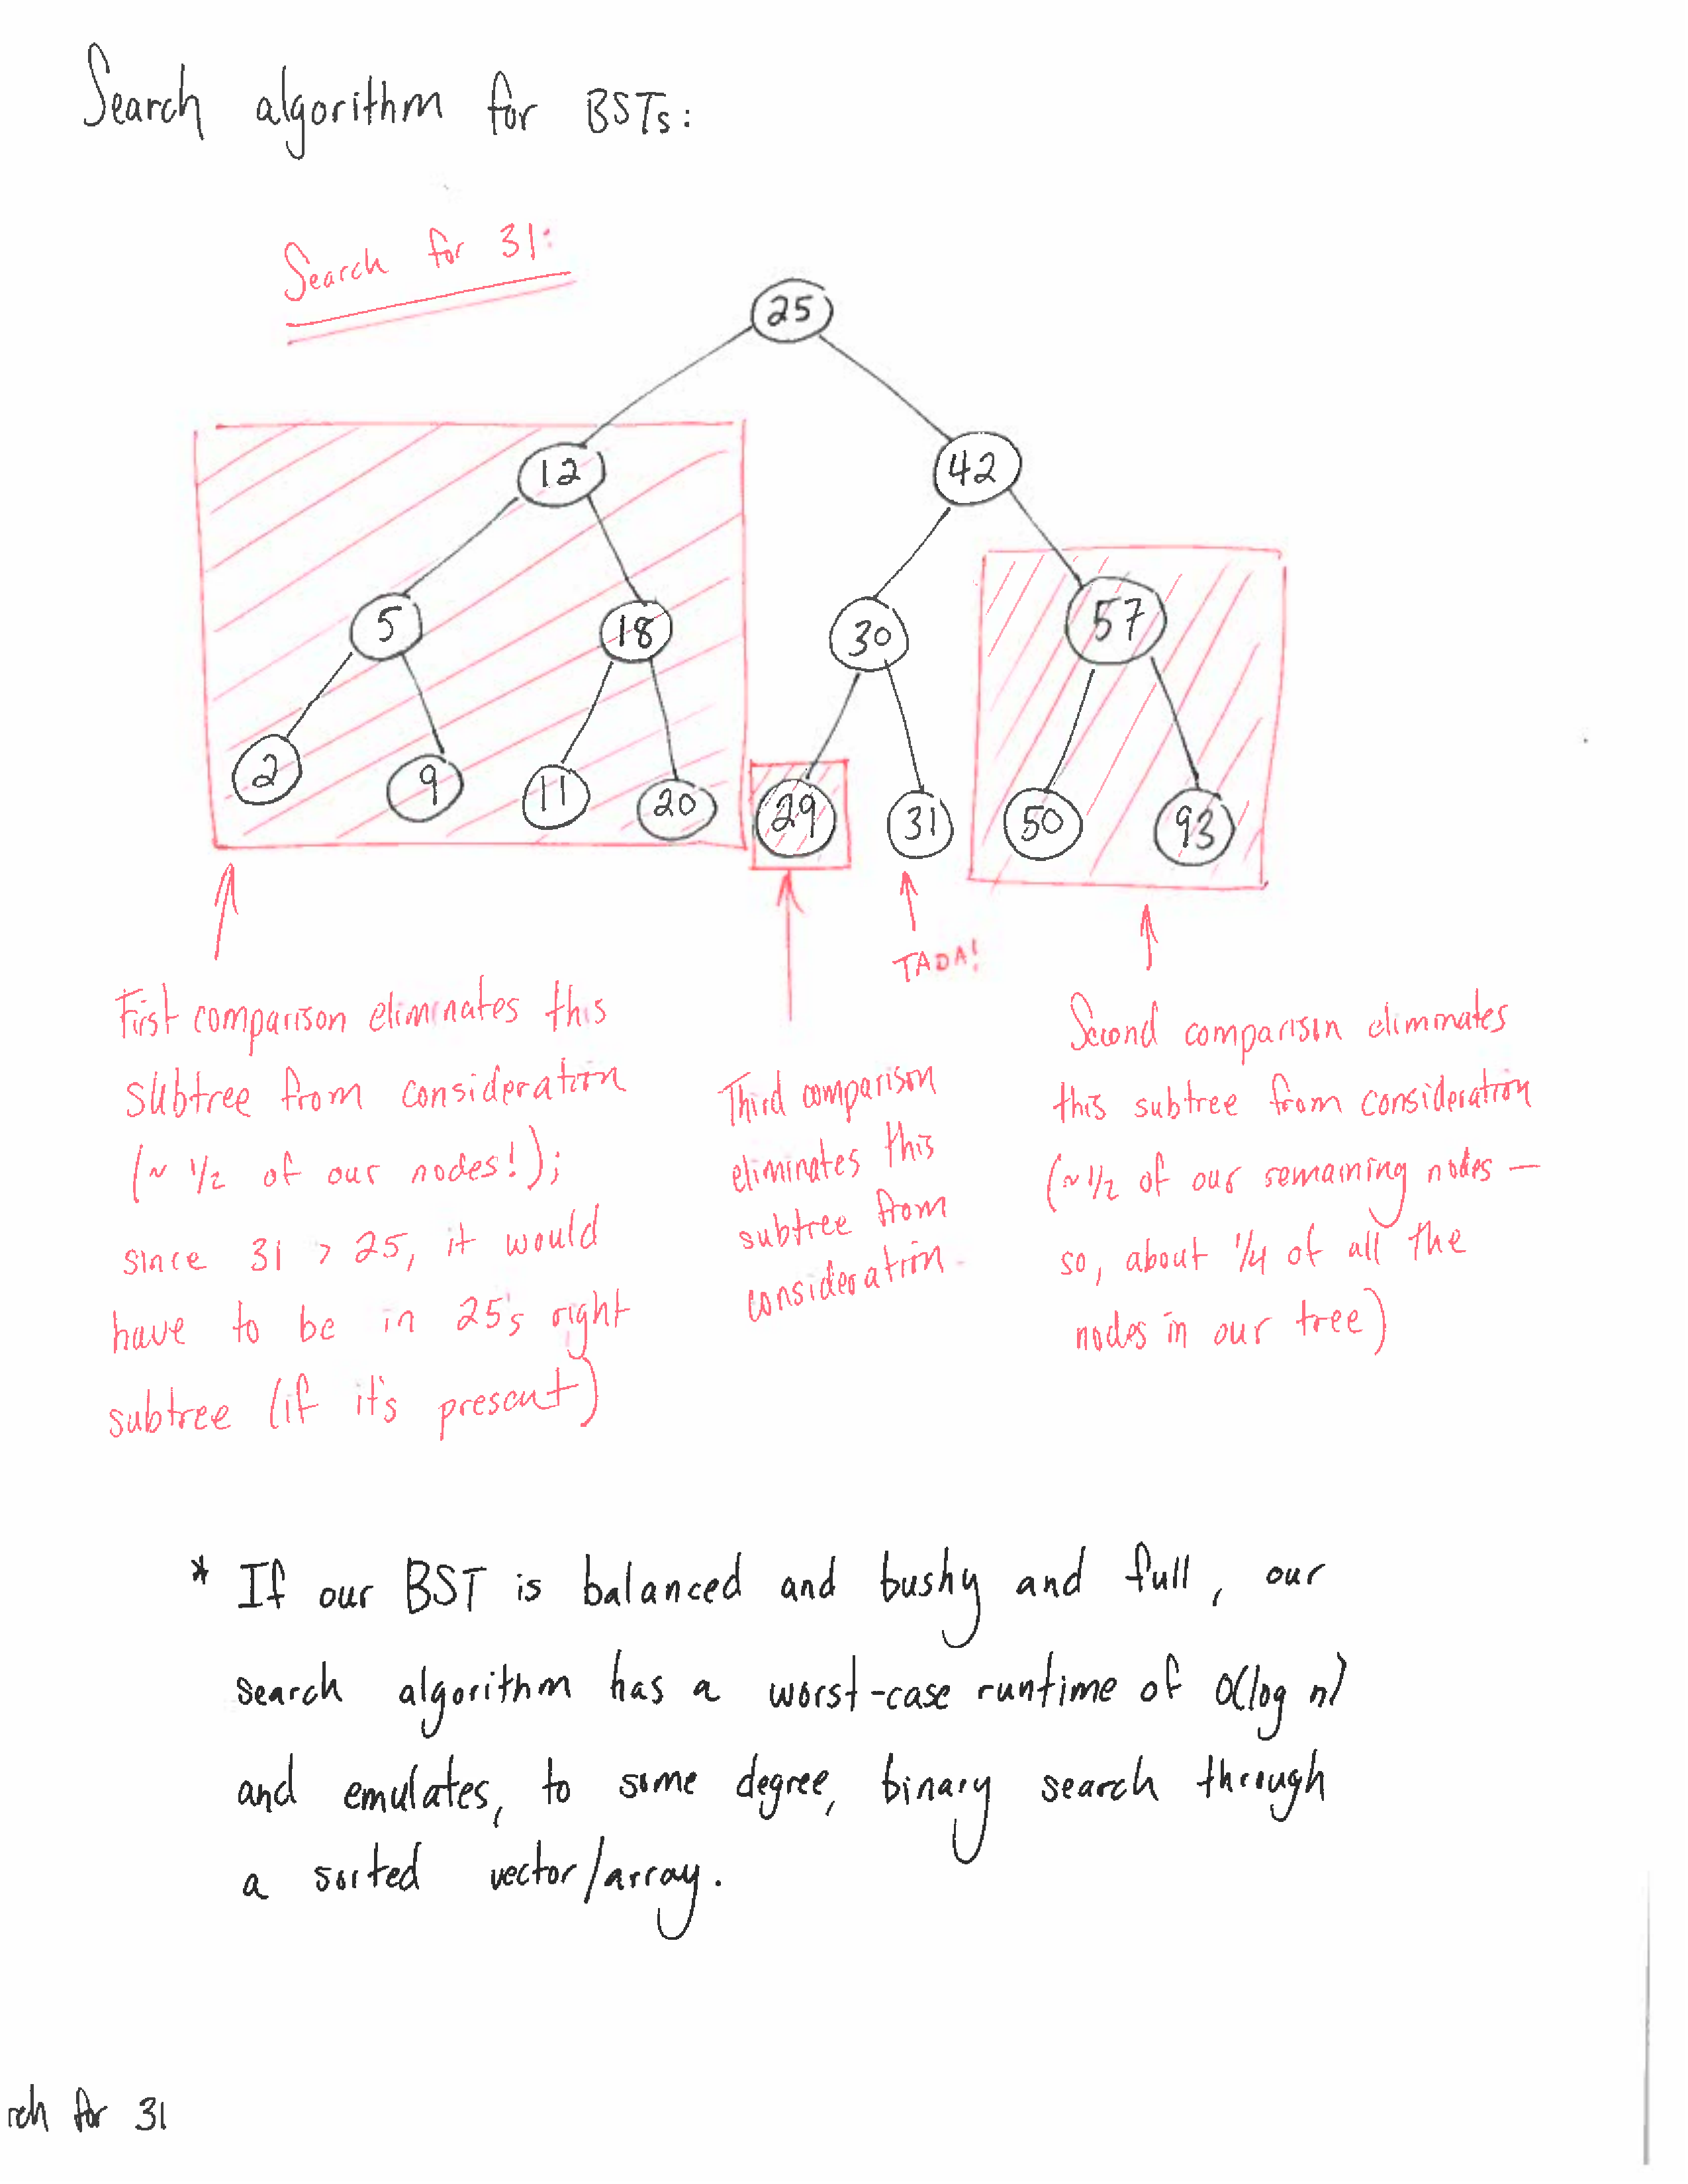 Search algorithm for BSTs:
Search for 31:
25
12
42
5
18
30
57
2
9
11
20
29
31
50
93
TADA!
First comparison eliminates this
subtree from consideration
(~ 1/2 of our nodes!);
since 31 > 25, it would
have to be in 25's right
subtree (if it's present)
Third comparison
eliminates this
subtree from
consideration.
Second comparison eliminates
this subtree from consideration
(~1/2 of our remaining nodes —
so, about 1/4 of all the
nodes in our tree)
* If our BST is balanced and bushy and full, our
search algorithm has a worst-case runtime of O(log n)
and emulates, to some degree, binary search through
a sorted vector/array.
rch for 31